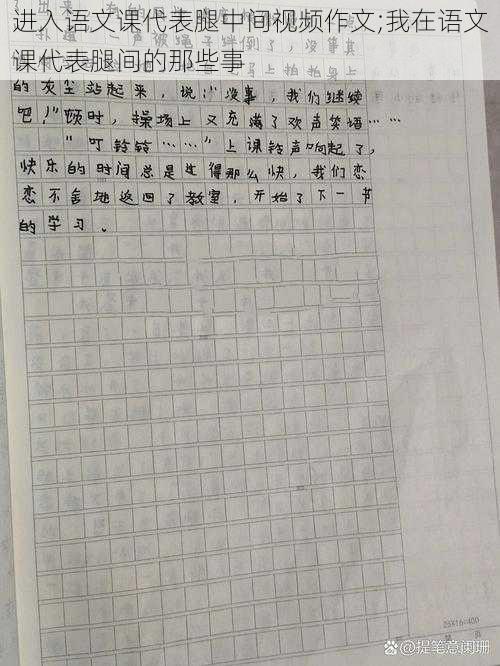 进入语文课代表腿中间视频作文;我在语文
课代表腿间的那些事
声被绳子绊倒了，没事其
上拍拍身上
的灰尘站起来，说："没事，我们继续
吧！"顿时，操场上又充满了欢声笑语……
"叮铃铃……"上课铃声响起了，
快乐的时间总是过得那么快，我们恋
恋不舍地返回了教室，开始了下一节
的学习。
25X16=400
@提笔意阑珊